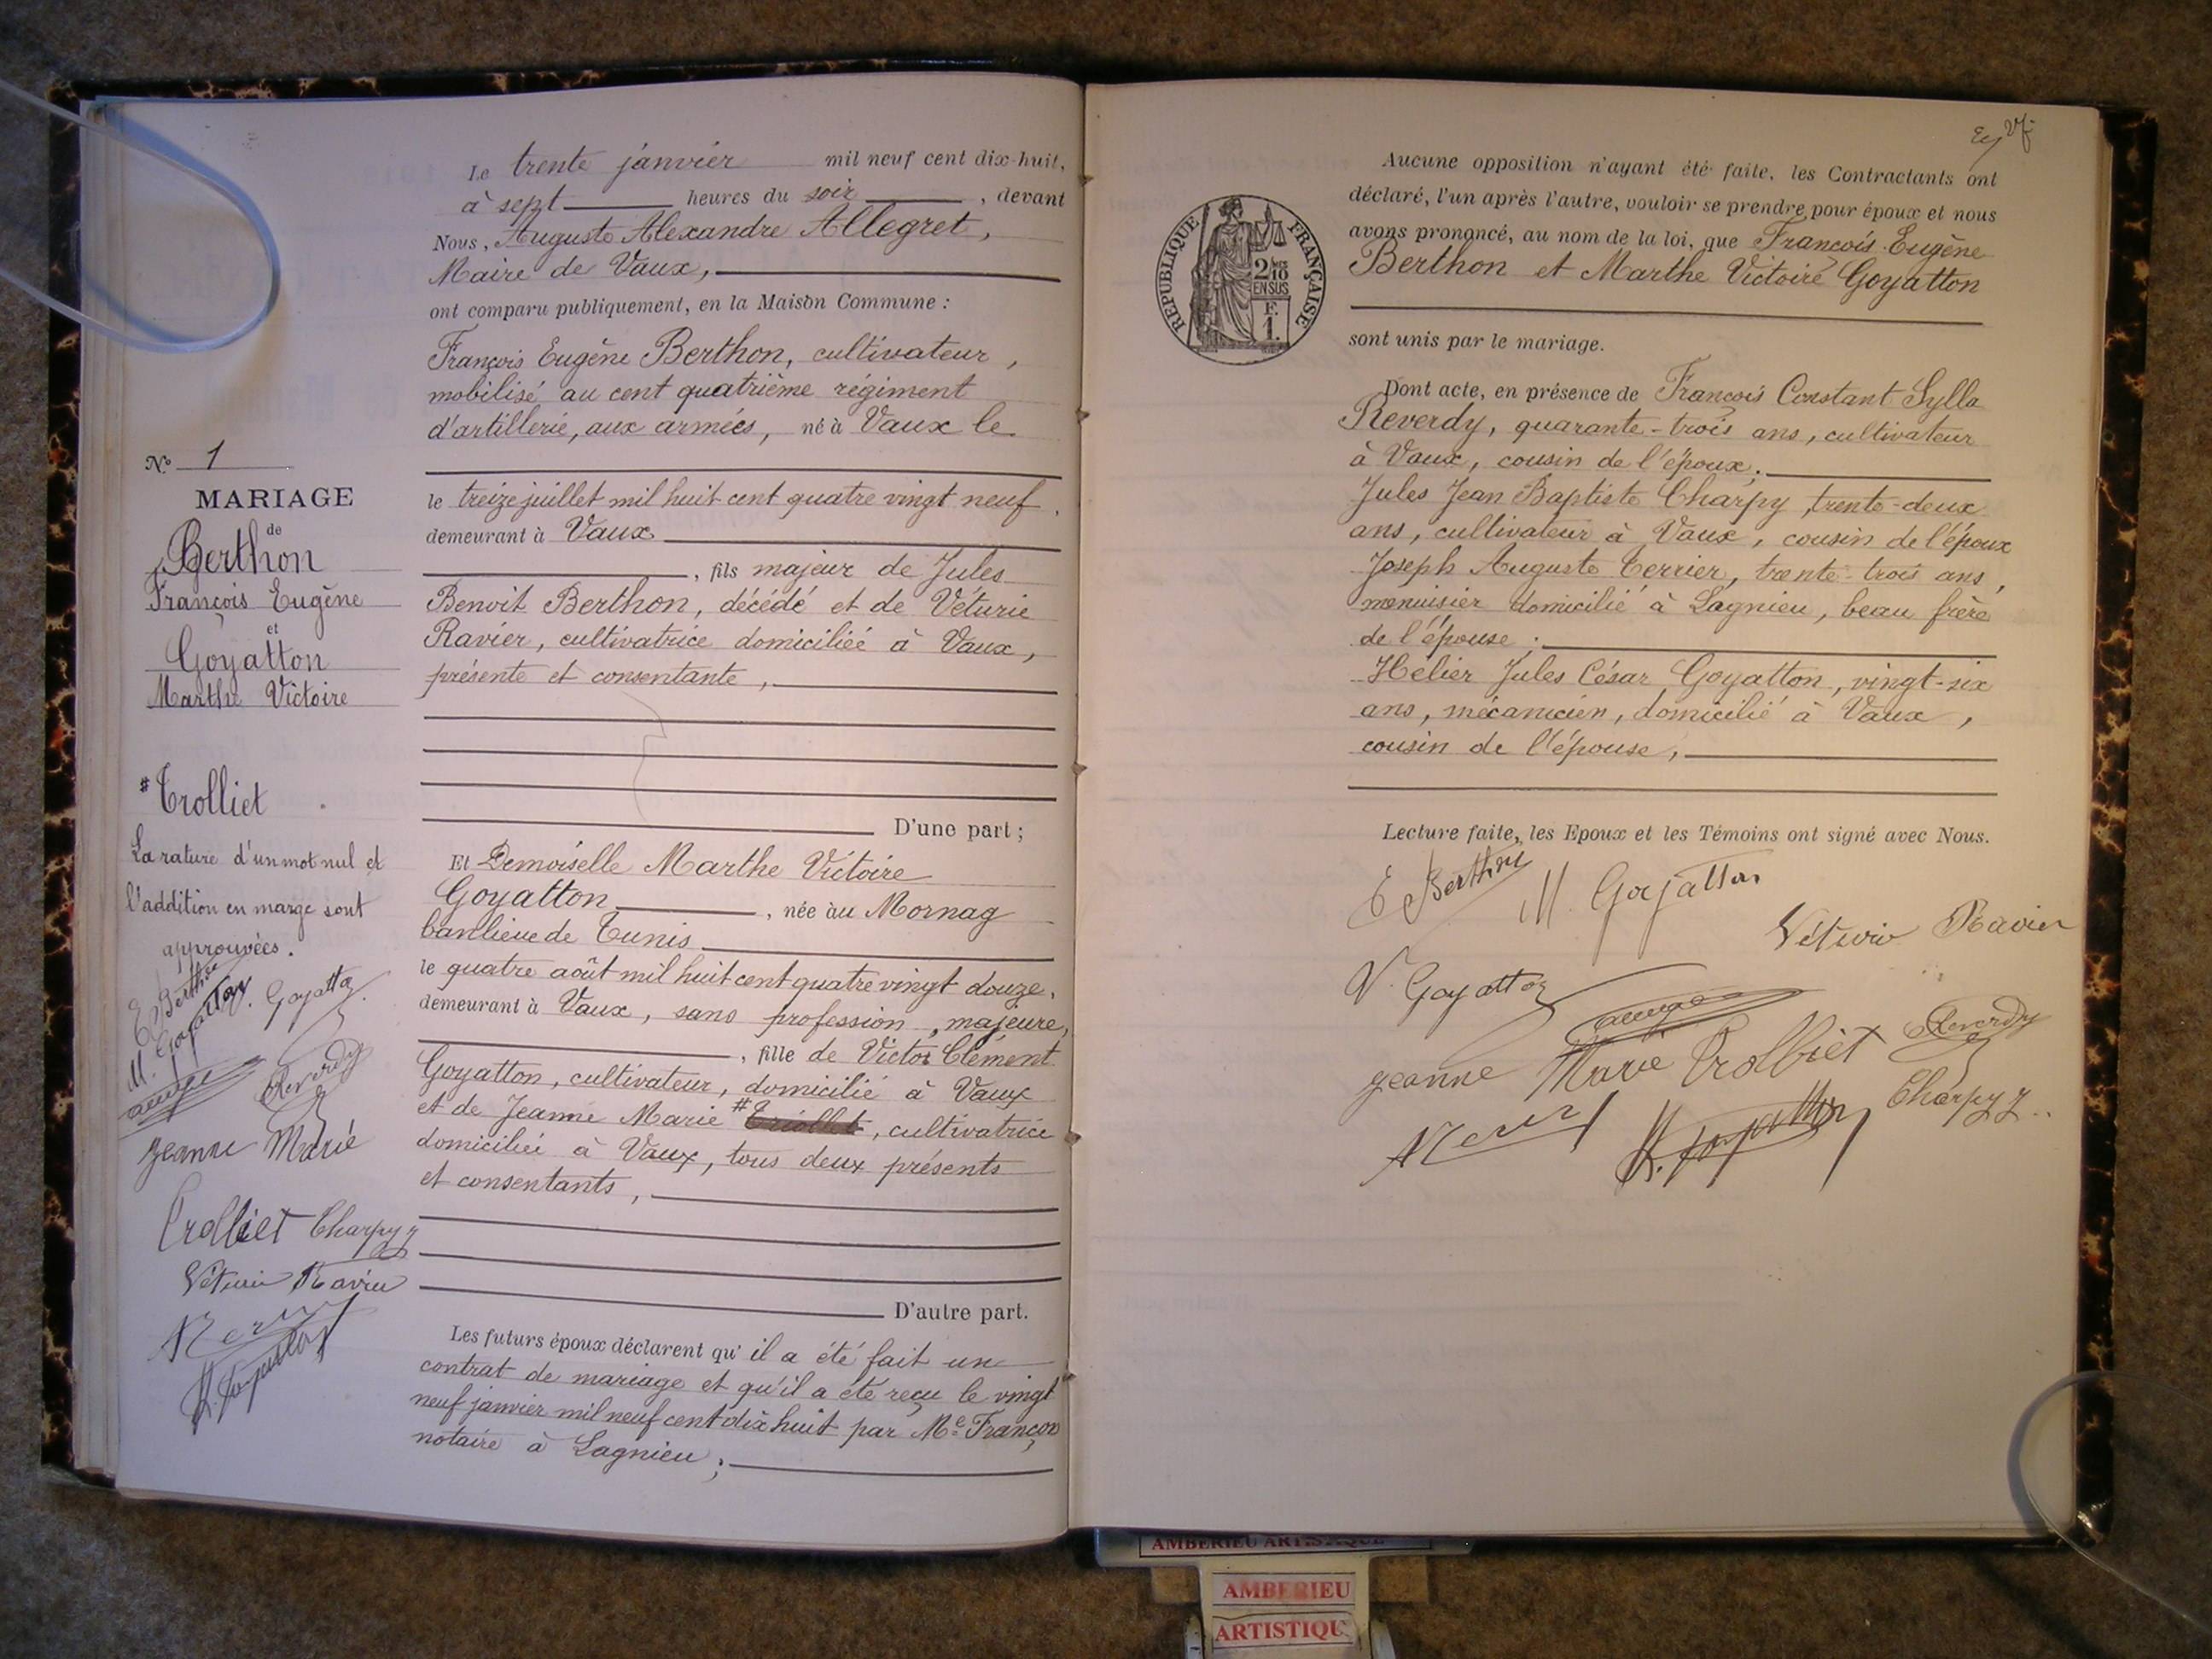 N° 1
MARIAGE
de
Berthon
François Eugène
et
Goyatton
Marthe Victoire
# Trolliet
La rature d'un mot nul et
l'addition en marge sont
approuvées.
E Berthon
M. Goyatton
V. Goyatton
Reverdy
Jeanne Marie
Trolliet Charpy J
Véturie Ravier
Le trente janvier mil neuf cent dix-huit,
à sept heures du soir, devant
Nous, Auguste Alexandre Allegret,
Maire de Vaux,
ont comparu publiquement, en la Maison Commune :
François Eugène Berthon, cultivateur,
mobilisé au cent quatrième régiment
d'artillerie, aux armées, né à Vaux le
le treize juillet mil huit cent quatre vingt neuf,
demeurant à Vaux
, fils majeur de Jules
Benoit Berthon, décédé et de Véturie
Ravier, cultivatrice domiciliée à Vaux,
présente et consentante,
D'une part ;
Et Demoiselle Marthe Victoire
Goyatton, née àu Mornag
banlieue de Tunis
le quatre août mil huit cent quatre vingt douze,
demeurant à Vaux, sans profession, majeure,
, fille de Victor Clément
Goyatton, cultivateur, domicilié à Vaux
et de Jeanne Marie # Triollet, cultivatrice
domiciliée à Vaux, tous deux présents
et consentants,
D'autre part.
Les futurs époux déclarent qu' il a été fait un
contrat de mariage et qu'il a été reçu le vingt
neuf janvier mil neuf cent dix huit par Me Françon
notaire à Lagnieu ;
REPUBLIQUE FRANÇAISE
2/10
EN SUS
F.
1.
Aucune opposition n'ayant été faite, les Contractants ont
déclaré, l'un après l'autre, vouloir se prendre pour époux et nous
avons prononcé, au nom de la loi, que François Eugène
Berthon et Marthe Victoire Goyatton
sont unis par le mariage.
Dont acte, en présence de François Constant Sylla
Reverdy, quarante-trois ans, cultivateur
à Vaux, cousin de l'époux ;
Jules Jean Baptiste Charpy, trente-deux
ans, cultivateur à Vaux, cousin de l'époux
Joseph Auguste Terrier, trente-trois ans,
menuisier domicilié à Lagnieu, beau frère
de l'épouse ;
Hélier Jules César Goyatton, vingt-six
ans, mécanicien, domicilié à Vaux,
cousin de l'épouse,
Lecture faite, les Epoux et les Témoins ont signé avec Nous.
E Berthon M. Goyatton
Véturie Ravier
V. Goyatton
Reverdy
Jeanne Marie Trolliet
Charpy J.
H. Goyatton
AMBERIEU ARTISTIQUE
AMBERIEU
ARTISTIQU